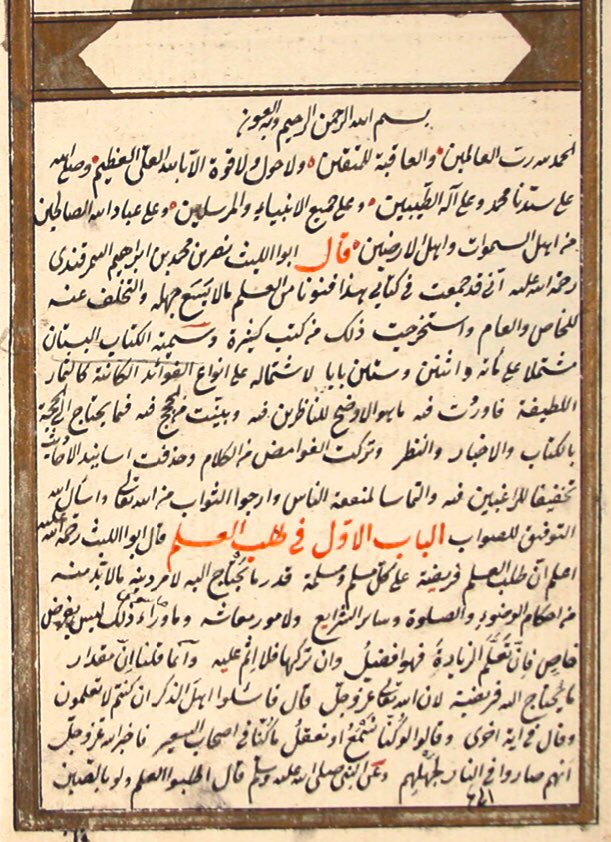 بسم الله الرحمن الرحيم وبه العون
الحمد لله رب العالمين والعاقبة للمتقين ولا حول ولا قوة الا بالله العلى العظيم وصلى الله
على سيدنا محمد وعلى آله الطيبين وعلى جميع الانبياء والمرسلين وعلى عباد الله الصالحين
من اهل السموات واهل الارضين قال ابو الليث نصر بن محمد بن ابرهيم السمرقندى
رحمة الله عليه انى قد جمعت فى كتابى هذا فنونا من العلم مالا يسع جهله والتخلف عنه
للخاص والعام واستخرجت ذلك من كتب كثيرة وسميته الكتاب البستان
مشتملا على مائة واثنين وستين بابا لاشتماله على انواع الفوائد الكائنة كالثمار
اللطيفة فاوردت فيه ما هو الاوضح للناظرين فيه وبينت الحجج فيه فيما يحتاج الى الحجة
بالكتاب والاخبار والنظر وتركت الغوامض من الكلام وحذفت اسانيد الاحاديث
تخفيفا للراغبين فيه والتماسا لمنفعة الناس وارجوا الثواب من الله تعالى واسأل الله
التوفيق للصواب الباب الاول فى طلب العلم قال ابو الليث رحمة الله عليه
اعلم ان طلب العلم فريضة على كل مسلم ومسلمة قدر ما يحتاج اليه لامر دينه مالا بد منه
من احكام الوضوء والصلوة وساير الشرايع ولامور معاشه وما وراء ذلك ليس بفرض
خاص فان تعلم الزيادة فهو افضل وان تركها فلا اثم عليه وانما قلنا ان مقدار
ما يحتاج اليه فريضة لان الله تعالى عز وجل قال فاسئلوا اهل الذكر ان كنتم لا تعلمون
وقال فى آية اخرى وقالوا لو كنا نسمع او نعقل ما كنا فى اصحاب السعير فاخبر الله عز وجل
انهم صاروا فى النار لجهلهم وعن النبى صلى الله عليه وسلم قال اطلبوا العلم ولو بالصين